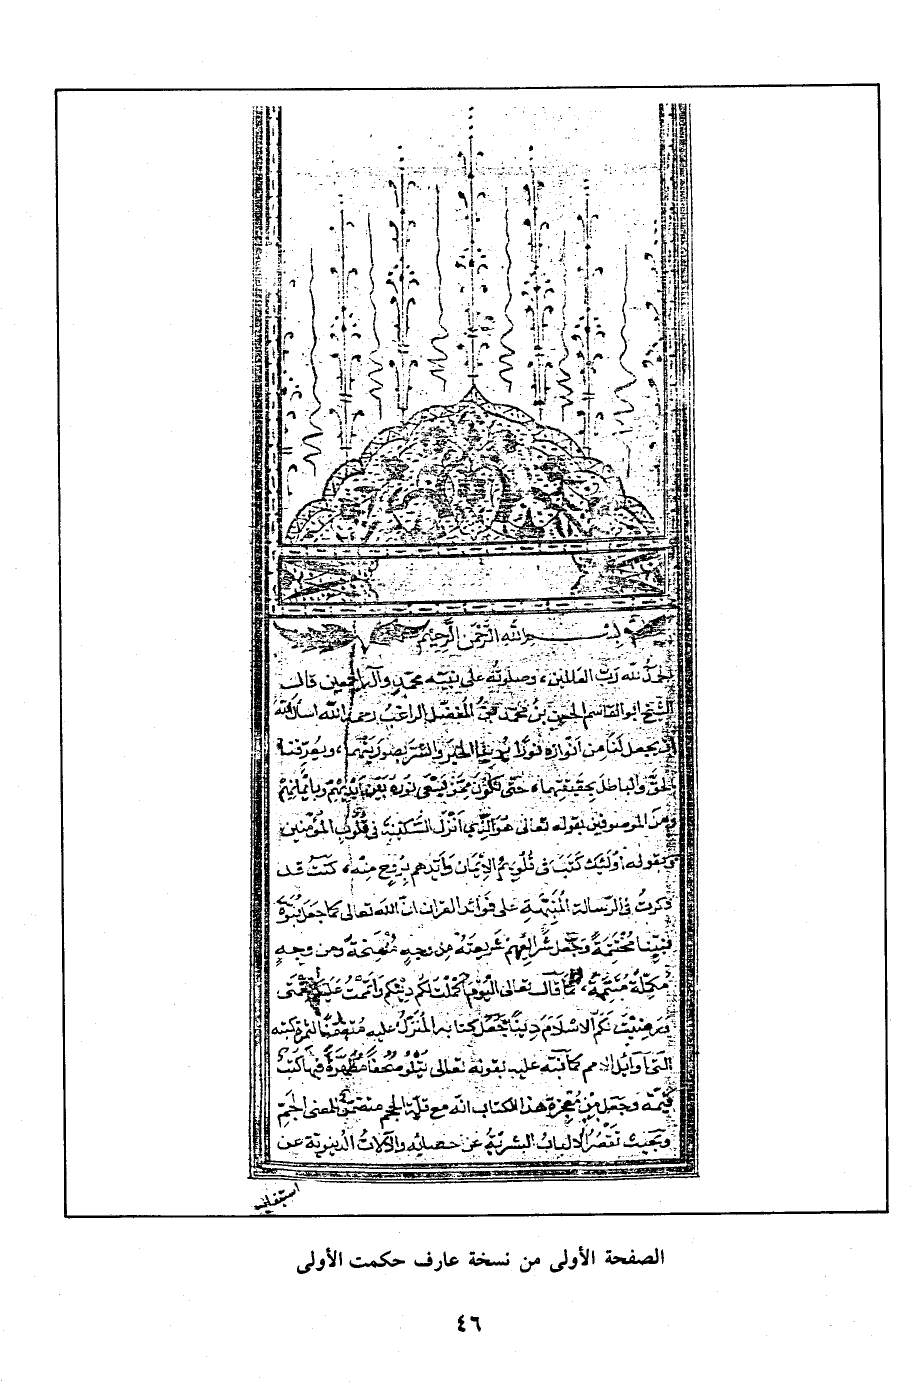 بسم الله الرحمن الرحيم
الحمد لله رب العالمين، وصلوته على نبيه محمد وآله أجمعين قال
الشيخ ابو القاسم الحسين بن محمد بن المفضل الراغب رحمه الله اسال الله
ان يجعل لنا من أنواره نورا يرينا الخير والشر بصورتيهما، ويعرفنا
الحق والباطل بحقيقتهما، حتى نكون ممن يسعى نوره بين أيديهم وبأيمانهم
ومن الموصوفين بقوله تعالى هو الذي أنزل السكينة في قلوب المؤمنين
وبقوله أولئك كتب في قلوبهم الإيمان وأيدهم بروح منه، كنت قد
ذكرت في الرسالة المنبهة على فوائد القران ان الله تعالى كما جعل نبوة
نبينا مختتمة وجعل شرائعهم بشريعته من وجه منتسخة ومن وجه
مكملة متممة، كما قال تعالى اليوم أكملت لكم دينكم وأتممت عليكم نعمتى
ورضيت لكم الاسلام دينا جعل كتابه المنزل عليه متضمنا لثمرة كتبه
التى أوايل الامم كما نبه عليه بقوله تعالى يتلو صحفا مطهرة فيها كتب
قيمة وجعل من معجزة هذا الكتاب انه مع قلة الحجم متضمن للمعنى الجم
وبحيث تقصر الالباب البشرية عن احصائه والآلات الدنيوية عن
استيفائه
الصفحة الأولى من نسخة عارف حكمت الأولى
٤٦